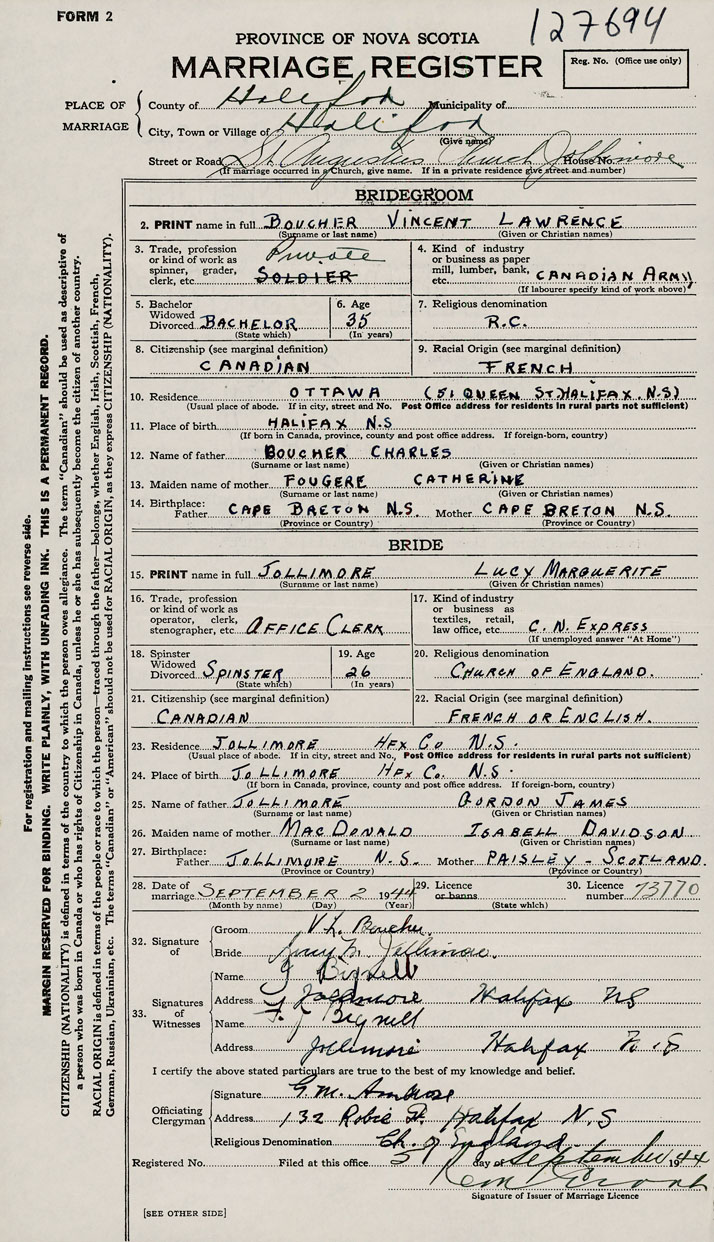 FORM 2
127694
PROVINCE OF NOVA SCOTIA
MARRIAGE REGISTER
Reg. No. (Office use only)
PLACE OF MARRIAGE
County of Halifax Municipality of
City, Town or Village of Halifax
(Give name)
Street or Road St. Augustus Church Jollimore House No.
(If marriage occurred in a Church, give name. If in a private residence give street and number)
BRIDEGROOM
2. PRINT name in full BOUCHER VINCENT LAWRENCE
(Surname or last name) (Given or Christian names)
3. Trade, profession or kind of work as spinner, grader, clerk, etc. Private SOLDIER
4. Kind of industry or business as paper mill, lumber, bank, etc. CANADIAN ARMY
(If labourer specify kind of work above)
5. Bachelor Widowed Divorced BACHELOR
(State which)
6. Age 35
(In years)
7. Religious denomination R.C.
8. Citizenship (see marginal definition) CANADIAN
9. Racial Origin (see marginal definition) FRENCH
10. Residence OTTAWA (51 QUEEN ST HALIFAX. N.S)
(Usual place of abode. If in city, street and No. Post Office address for residents in rural parts not sufficient)
11. Place of birth HALIFAX N.S
(If born in Canada, province, county and post office address. If foreign-born, country)
12. Name of father BOUCHER CHARLES
(Surname or last name) (Given or Christian names)
13. Maiden name of mother FOUGERE CATHERINE
(Surname or last name) (Given or Christian names)
14. Birthplace: Father CAPE BRETON N.S. Mother CAPE BRETON N.S.
(Province or Country) (Province or Country)
BRIDE
15. PRINT name in full JOLLIMORE LUCY MARGUERITE
(Surname or last name) (Given or Christian names)
16. Trade, profession or kind of work as operator, clerk, stenographer, etc. OFFICE CLERK
17. Kind of industry or business as textiles, retail, law office, etc. C.N. EXPRESS
(If unemployed answer "At Home")
18. Spinster Widowed Divorced SPINSTER
(State which)
19. Age 26
(In years)
20. Religious denomination CHURCH OF ENGLAND.
21. Citizenship (see marginal definition) CANADIAN
22. Racial Origin (see marginal definition) FRENCH OR ENGLISH.
23. Residence JOLLIMORE HFX CO N.S.
(Usual place of abode. If in city, street and No., Post Office address for residents in rural parts not sufficient)
24. Place of birth JOLLIMORE HFX CO. N.S.
(If born in Canada, province, county and post office address. If foreign-born, country)
25. Name of father JOLLIMORE GORDON JAMES
(Surname or last name) (Given or Christian names)
26. Maiden name of mother MACDONALD ISABELL DAVIDSON
(Surname or last name) (Given or Christian names)
27. Birthplace: Father JOLLIMORE N.S. Mother PAISLEY - SCOTLAND.
(Province or Country) (Province or Country)
28. Date of marriage SEPTEMBER 2 1944
(Month by name) (Day) (Year)
29. Licence or banns
(State which)
30. Licence number 73770
32. Signature of
Groom V.L. Boucher
Bride Lucy M. Jollimore.
33. Signatures of Witnesses
Name J Bignell
Address Jollimore Halifax NS
Name F. J. Bignell
Address Jollimore Halifax N.S
I certify the above stated particulars are true to the best of my knowledge and belief.
Officiating Clergyman
Signature G.M. Ambrose
Address 132 Robie St Halifax N.S
Religious Denomination Ch. of England
Registered No. Filed at this office 5 day of September 1944
Signature of Issuer of Marriage Licence
[SEE OTHER SIDE]
For registration and mailing instructions see reverse side.
MARGIN RESERVED FOR BINDING. WRITE PLAINLY, WITH UNFADING INK. THIS IS A PERMANENT RECORD.
CITIZENSHIP (NATIONALITY) is defined in terms of the country to which the person owes allegiance. The term "Canadian" should be used as descriptive of
a person who was born in Canada or who has rights of Citizenship in Canada, unless he or she has subsequently become the citizen of another country.
RACIAL ORIGIN is defined in terms of the people or race to which the person—traced through the father—belongs, whether English, Irish, Scottish, French,
German, Russian, Ukrainian, etc. The terms "Canadian" or "American" should not be used for RACIAL ORIGIN, as they express CITIZENSHIP (NATIONALITY).